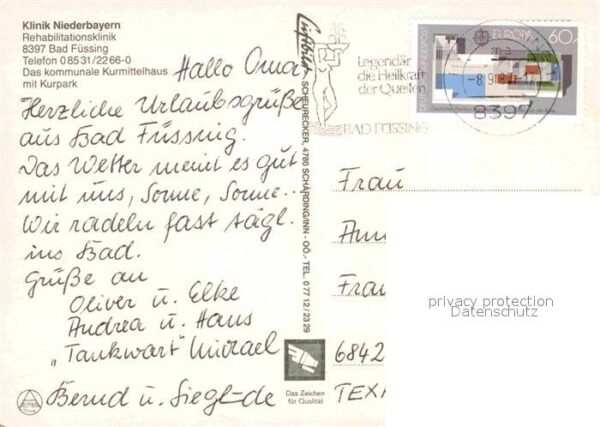 Klinik Niederbayern
Rehabilitationsklinik
8397 Bad Füssing
Telefon 0 85 31/22 66-0
Das kommunale Kurmittelhaus
mit Kurpark
Hallo Oma
Herzliche Urlaubsgrüße
aus Bad Füssing.
Das Wetter meint es gut
mit uns, Sonne, Sonne...
Wir radeln fast tägl.
ins Bad.
Grüße an
Oliver u. Elke
Andrea u. Hans
„Tankwart" Michael
Bernd u. Siegl-de
Luftbild
SCHEURECKER, 4780 SCHÄRDING/INN - OÖ. - TEL. 0 77 12 / 23 29
Das Zeichen
für Qualität
Legendär
die Heilkraft
der Quellen
BAD FÜSSING
EUROPA
60
DEUTSCHE BUNDESPOST
8397
Frau
Frau
6842
privacy protection
Datenschutz